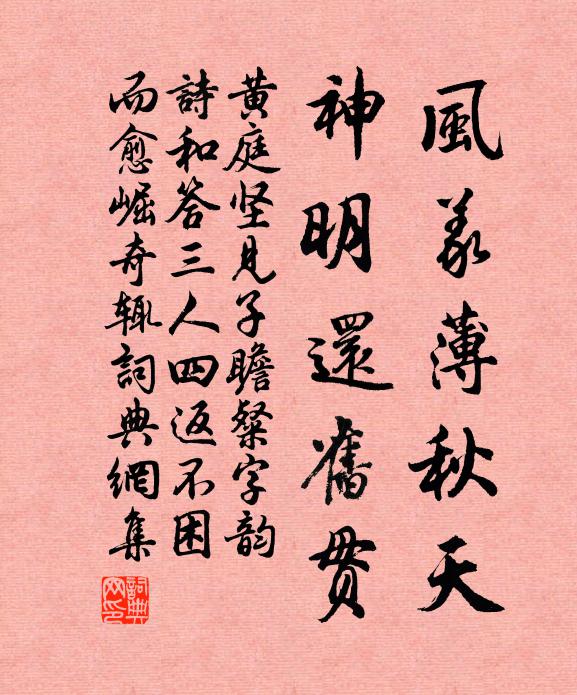 風義薄秋天
神明還舊貫
黄庭坚見子瞻粲字韵
詩和答三人四返不困
而愈崛奇輒詞典網集
詞典網印